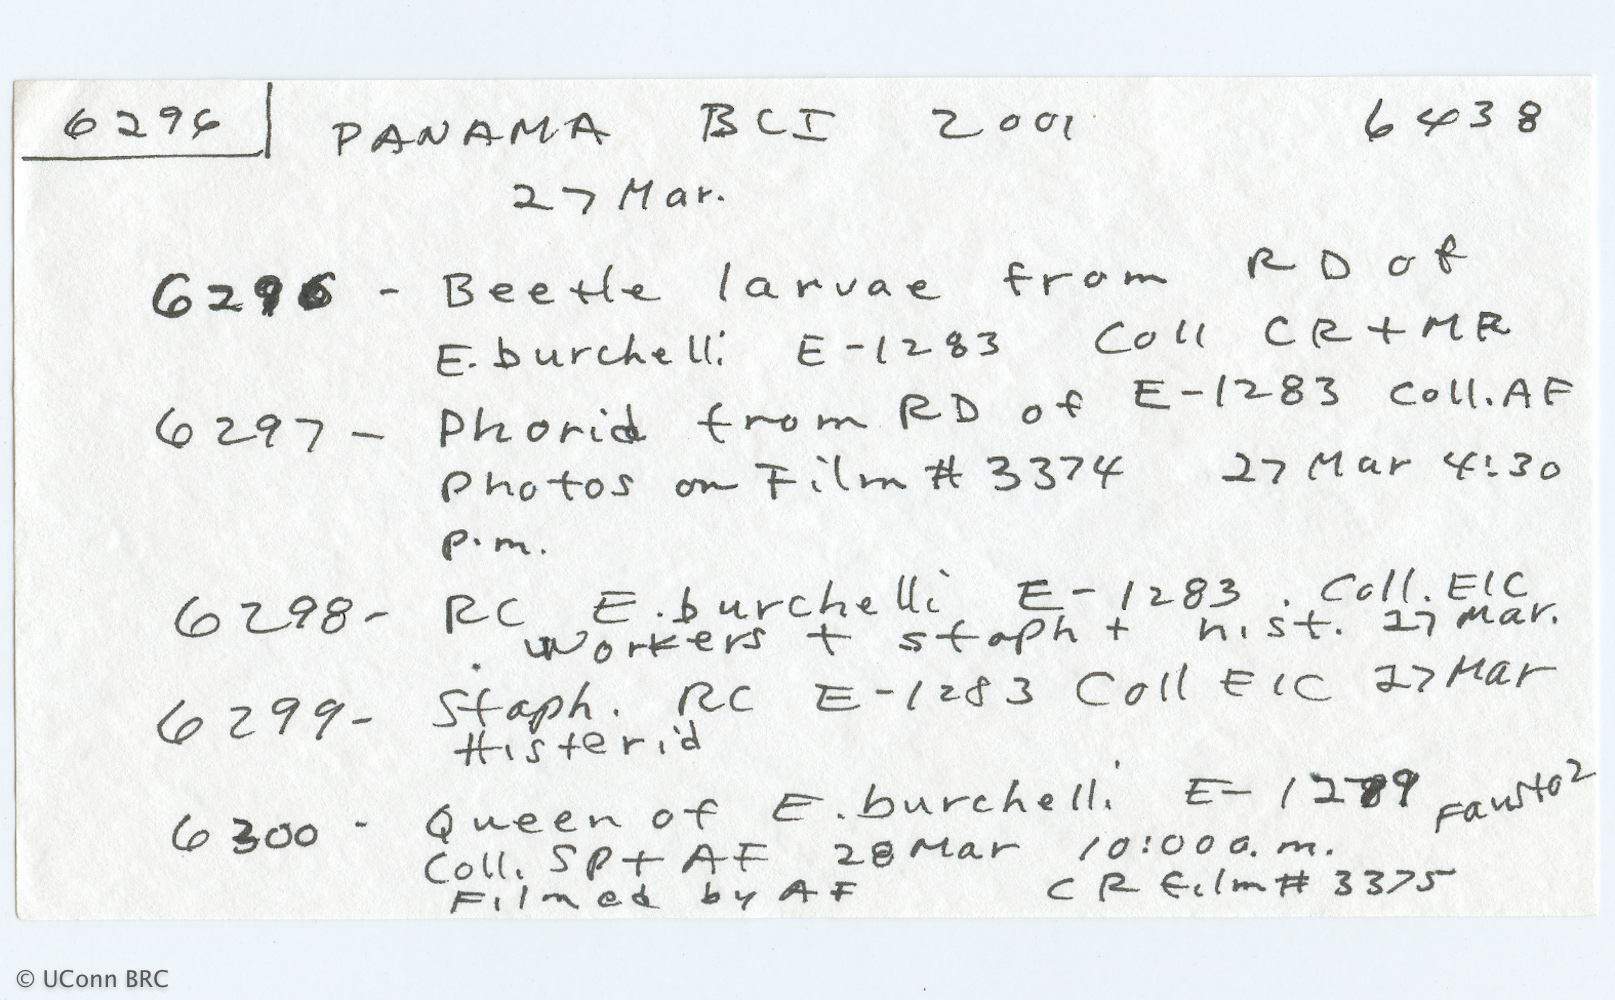 6296 PANAMA BCI 2001 6438
27 Mar.
6296 - Beetle larvae from RD of
E. burchelli E-1283 Coll CR + MR
6297 - Phorid from RD of E-1283 Coll. AF
Photos on Film # 3374 27 Mar 4:30
p.m.
6298 - RC E. burchelli E-1283. Coll. EIC
Workers + staph + hist. 27 Mar.
6299 - Staph. RC E-1283 Coll EIC 27 Mar
Histerid
6300 - Queen of E. burchelli E-1289 Fausto 2
Coll. SP + AF 28 Mar 10:00 a.m.
Filmed by AF CR film # 3375
© UConn BRC